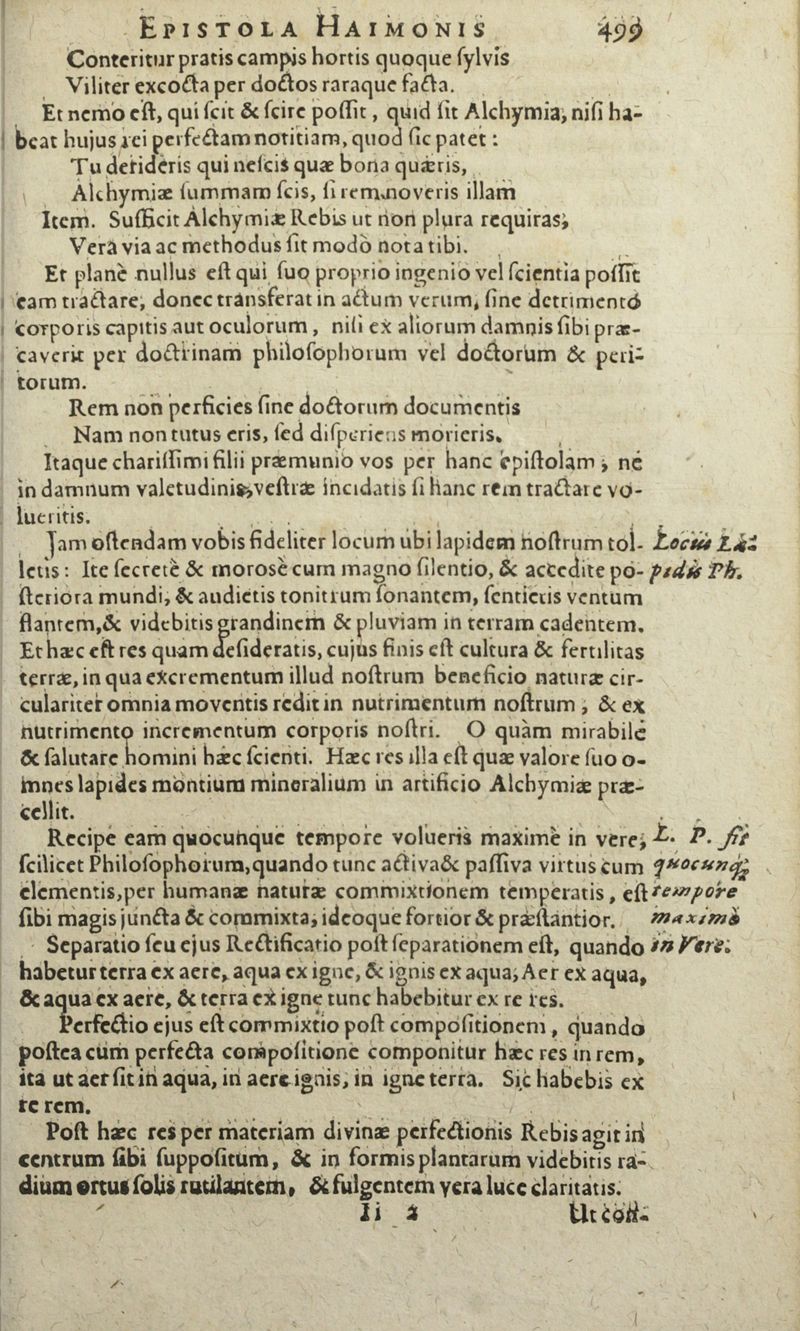 EPISTOLA HAIMONIS 499
Conteritur pratis campis hortis quoque ſylvis
Viliter excocta per doctos raraque facta.
Et nemo eſt, qui ſcit & ſcire poſſit, quid ſit Alchymia, niſi ha-
beat hujus rei perfectam notitiam, quod ſic patet:
Tu derideris qui neſcis quæ bona quæris,
Alchymiæ ſummam ſcis, ſi removeris illam
Item. Sufficit Alchymiæ Rebis ut non plura requiras,
Verà via ac methodus ſit modò nota tibi.
Et planè nullus eſt qui ſuo proprio ingenio vel ſcientia poſſit
eam tractare, donec transferat in actum verum, ſine detrimentô
corporis capitis aut oculorum, niſi ex aliorum damnis ſibi præ-
caverit per doctrinam philoſophorum vel doctorum & peri-
torum.
Rem non perficies ſine doctorum documentis
Nam non tutus eris, ſed diſperiens morieris.
Itaque chariſſimi filii præmunio vos per hanc epiſtolam, ne
in damnum valetudinis, veſtræ incidatis ſi hanc rem tractare vo-
lueritis.
Jam oſtendam vobis fideliter locum ubi lapidem noſtrum tol- Locus La-
letis: Ite ſecretè & morosè cum magno ſilentio, & accedite po- pidis Ph.
ſteriora mundi, & audietis tonitrum ſonantem, ſentietis ventum
flantem, & videbitis grandinem & pluviam in terram cadentem.
Et hæc eſt res quam deſideratis, cujus finis eſt cultura & fertilitas
terræ, in qua excrementum illud noſtrum beneficio naturæ cir-
culariter omnia moventis redit in nutrimentum noſtrum, & ex
nutrimento incrementum corporis noſtri. O quàm mirabile
& ſalutare homini hæc ſcienti. Hæc res illa eſt quæ valore ſuo o-
mnes lapides montium mineralium in artificio Alchymiæ præ-
cellit.
Recipe eam quocunque tempore volueris maximè in vere, L. P. fit
ſcilicet Philoſophorum, quando tunc activa & paſſiva virtus cum quocunq;
elementis, per humanæ naturæ commixtionem temperatis, eſt tempore
ſibi magis juncta & commixta, ideoque fortior & præſtantior. maximè
Separatio ſeu ejus Rectificatio poſt ſeparationem eſt, quando in Vere.
habetur terra ex aere, aqua ex igne, & ignis ex aqua, Aer ex aqua,
& aqua ex aere, & terra ex igne tunc habebitur ex re res.
Perfectio ejus eſt commixtio poſt compoſitionem, quando
poſtea cum perfecta compoſitione componitur hæc res in rem,
ita ut aer ſit in aqua, in aere ignis, in igne terra. Sic habebis ex
re rem.
Poſt hæc res per materiam divinæ perfectionis Rebis agit in
centrum ſibi ſuppoſitum, & in formis plantarum videbitis ra-
dium ortus ſolis rutilantem, & fulgentem vera luce claritatis.
Ii 2 Ut con-